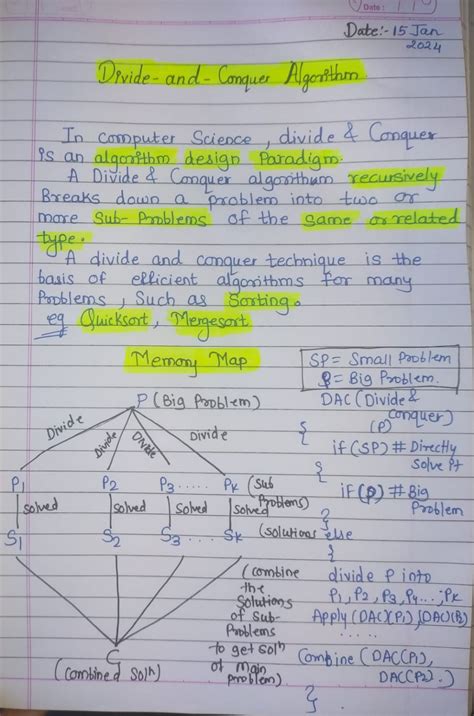 Date:
Date:- 15 Jan
2024
Divide-and-Conquer Algorithm
In computer Science, divide & Conquer
is an algorithm design Paradigm.
A Divide & Conquer algorithum recursively
Breaks down a problem into two or
more Sub-Problems of the same or related
type.
A divide and conquer technique is the
basis of efficient algorithms for many
Problems, Such as Sorting.
eg Quicksort, Mergesort
Memory Map
SP = Small Problem
P = Big Problem.
P (Big Problem)
Divide Divide Divide Divide
P1 P2 P3 ..... Pk (Sub
Problems)
solved solved solved solved
S1 S2 S3 ... Sk (solutions
(combine
the
Solutions
of Sub-
Problems
to get Solⁿ
of main
problem)
C
(Combined Solⁿ)
DAC (Divide &
Conquer)
(P)
{
if (SP) # Directly
Solve It
{
if (P) # Big
Problem
}
else
{
divide P into
P1, P2, P3, P4...; Pk
Apply (DAC)(P1), DAC(P2)
.....
Combine (DAC(P1),
DAC(P2).)
}